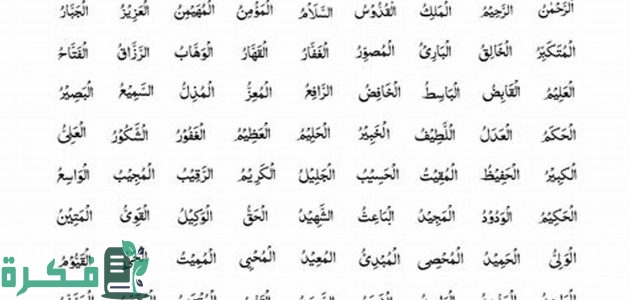 الرَّحْمٰنُ الرَّحِيْمُ الْمَلِكُ الْقُدُّوْسُ السَّلَامُ الْمُؤْمِنُ الْمُهَيْمِنُ الْعَزِيْزُ الْجَبَّارُ
الْمُتَكَبِّرُ الْخَالِقُ الْبَارِئُ الْمُصَوِّرُ الْغَفَّارُ الْقَهَّارُ الْوَهَّابُ الرَّزَّاقُ الْفَتَّاحُ
الْعَلِيْمُ الْقَابِضُ الْبَاسِطُ الْخَافِضُ الرَّافِعُ الْمُعِزُّ الْمُذِلُّ السَّمِيْعُ الْبَصِيْرُ
الْحَكَمُ الْعَدَلُ اللَّطِيْفُ الْخَبِيْرُ الْحَلِيْمُ الْعَظِيْمُ الْغَفُوْرُ الشَّكُوْرُ الْعَلِىُّ
الْكَبِيْرُ الْحَفِيْظُ الْمُقِيْتُ الْحَسِيْبُ الْجَلِيْلُ الْكَرِيْمُ الرَّقِيْبُ الْمُجِيْبُ الْوَاسِعُ
الْحَكِيْمُ الْوَدُوْدُ الْمَجِيْدُ الْبَاعِثُ الشَّهِيْدُ الْحَقُّ الْوَكِيْلُ الْقَوِىُّ الْمَتِيْنُ
الْوَلِىُّ الْحَمِيْدُ الْمُحْصِى الْمُبْدِئُ الْمُعِيْدُ الْمُحْيِى الْمُمِيْتُ الْحَىُّ الْقَيُّوْمُ
فكرة